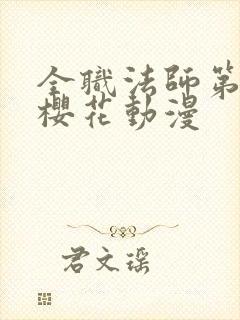 全職法師第
櫻花動漫
君文瑶